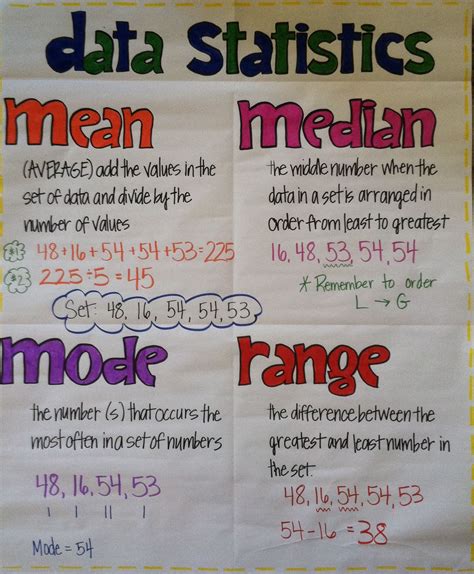 data Statistics
mean
(AVERAGE) add the values in the
set of data and divide by the
number of values
#1 48+16+54+54+53=225
#2 225÷5=45
Set: 48, 16, 54, 54, 53
median
the middle number when the
data in a set is arranged in
order from least to greatest
16, 48, 53, 54, 54
* Remember to order
L → G
mode
the number (s) that occurs the
most often in a set of numbers
48, 16, 54, 53
| | || |
Mode = 54
range
the difference between the
greatest and least number in
the set.
48, 16, 54, 54, 53
54-16=38